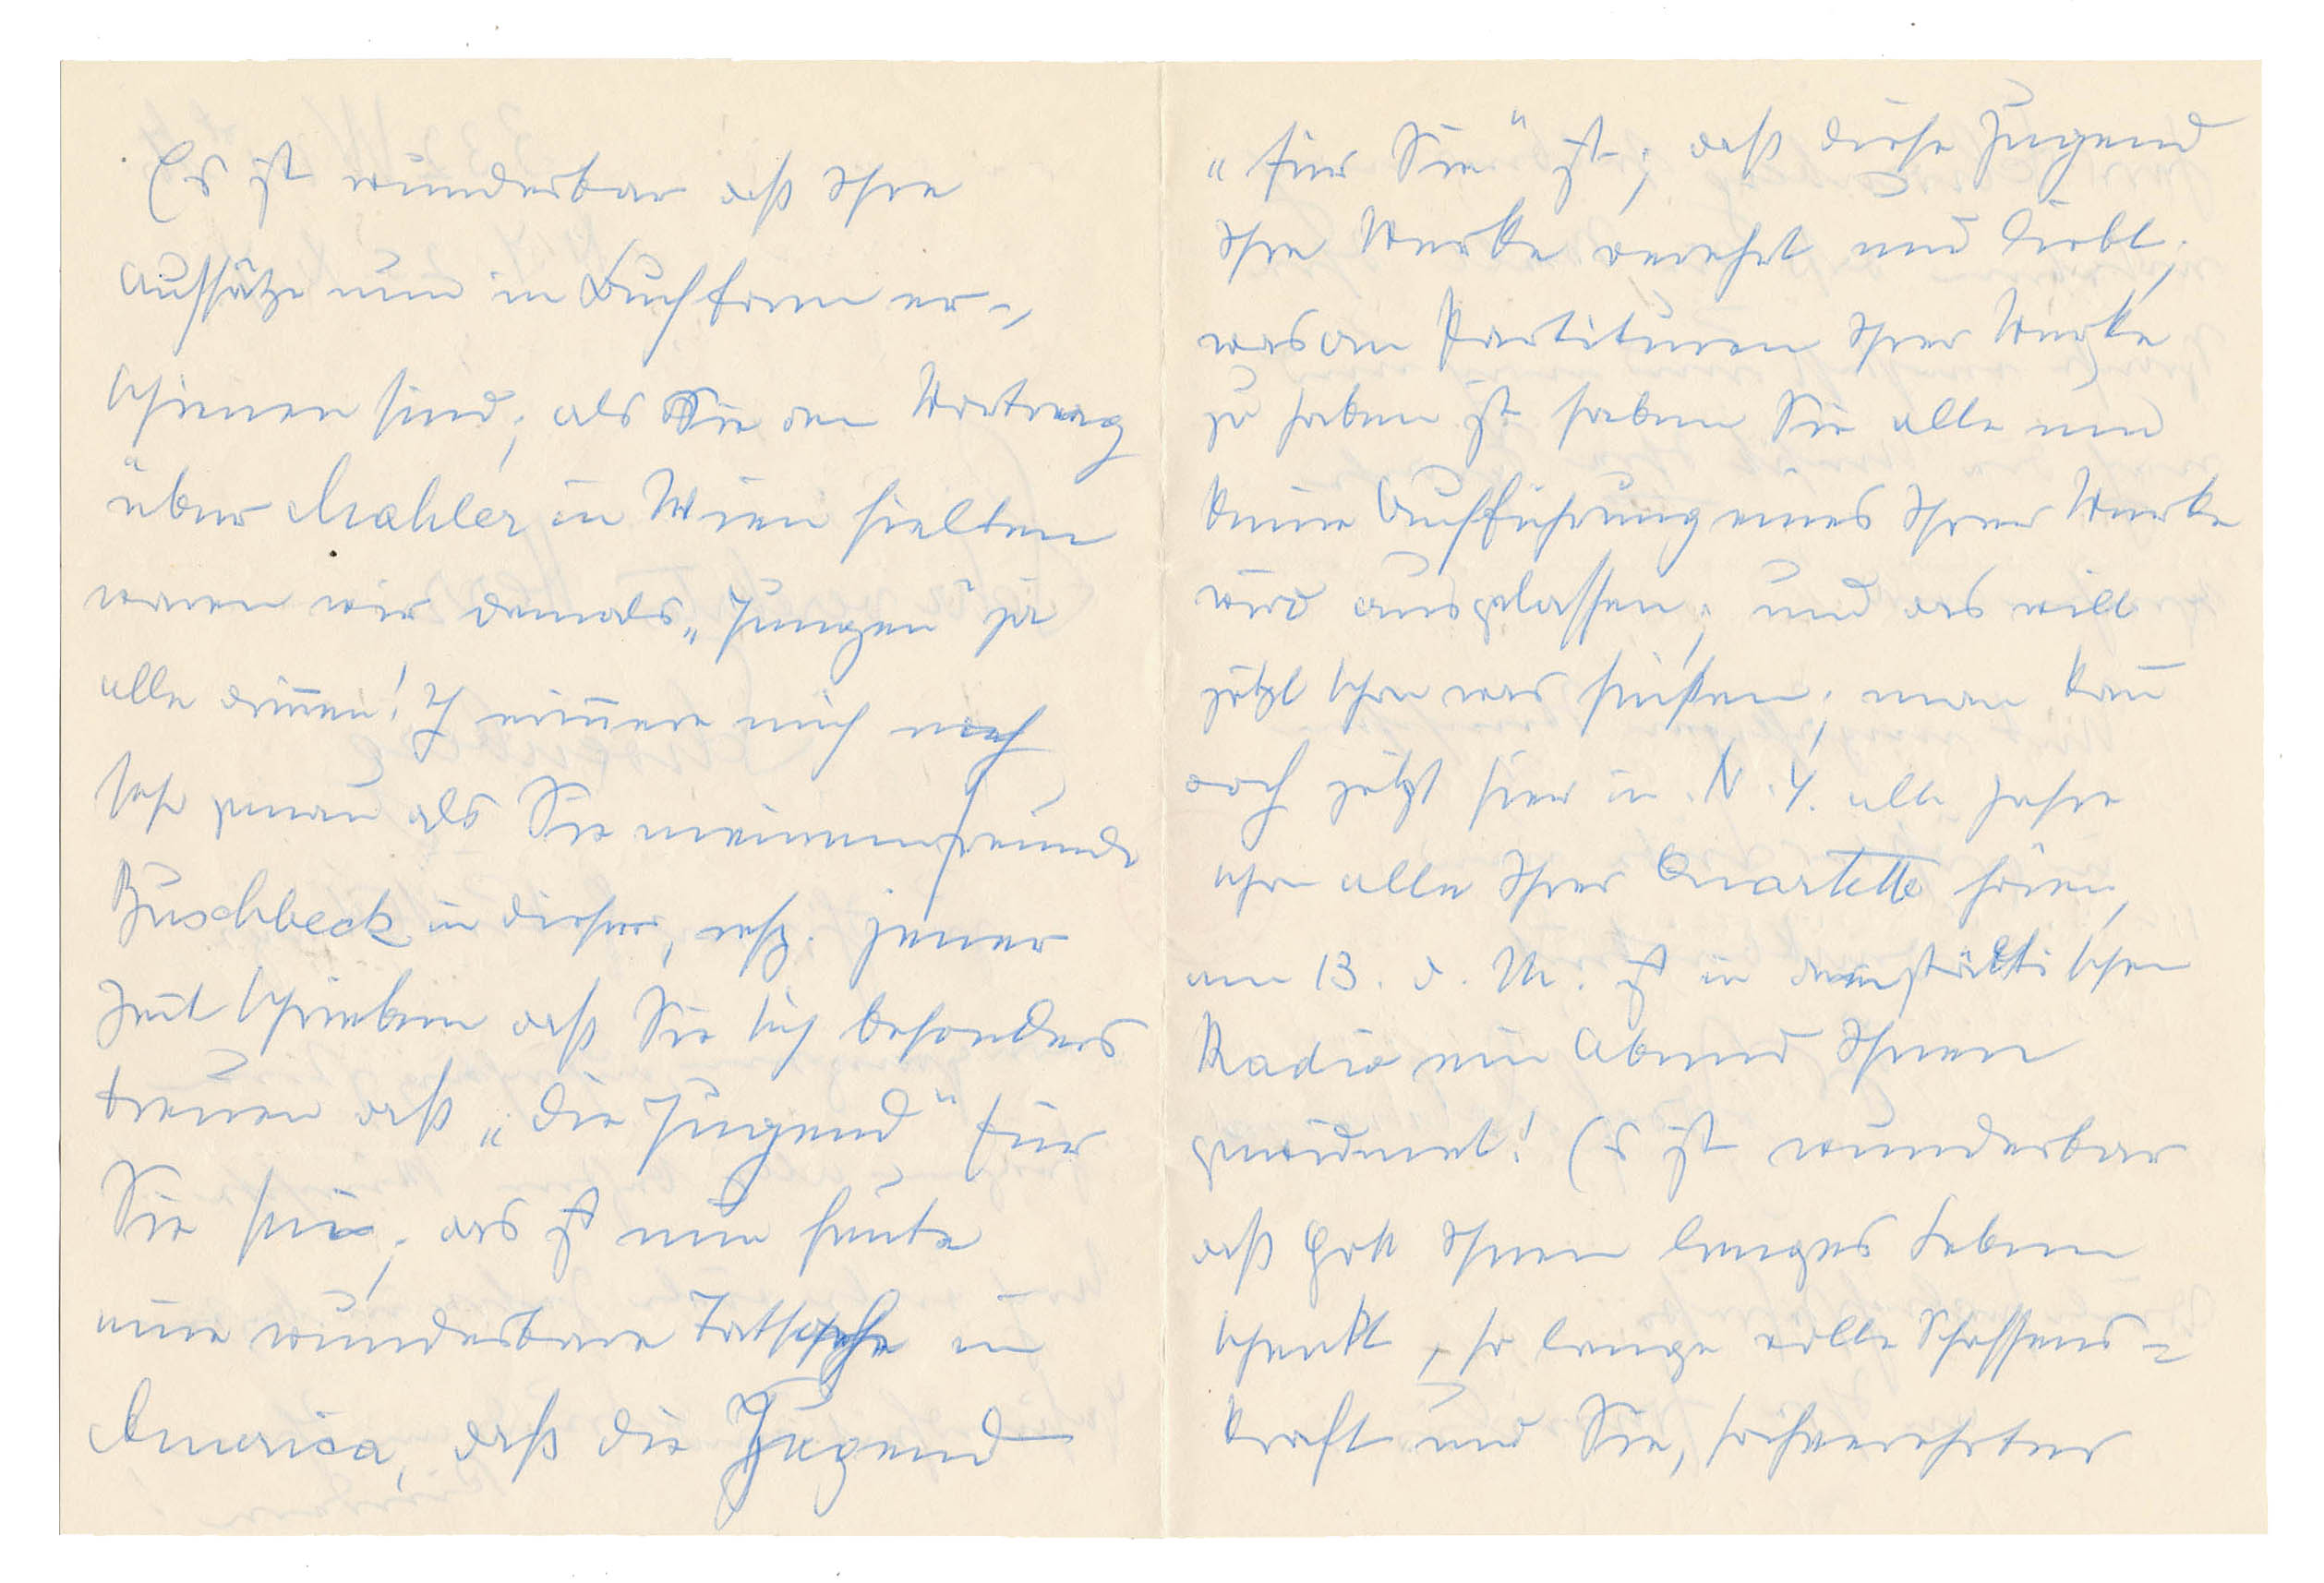 Es ist wunderbar daß Ihre
Aufsätze nun in Buchform er-
schienen sind; als Sie den Vortrag
über Mahler in Wien hielten
waren wir damals „Jungen" ja
alle drinnen! Ich erinnere mich noch
sehr genau als Sie meinem Freunde
Buschbeck in dieser, resp. jener
Zeit schrieben daß Sie sich besonders
freuen daß „die Jugend" für
Sie sei; das ist nun heute
eine wunderbare Tatsache in
America, daß die Jugend
„für Sie" ist; daß diese Jugend
Ihre Werke verehrt und liebt;
was an Partituren Ihrer Werke
zu haben ist haben Sie alle und
keine Aufführung eines Ihrer Werke
wird ausgelassen; und das will
jetzt schon was heißen; man kan̄
doch jetzt hier in N. Y. alle Jahre
schon alle Ihrer Quartette hören,
am 13. d. M. ist in dem städtischen
Radio ein Abend Ihnen
gewidmet! Es ist wunderbar
daß Gott Ihnen langes Leben
schenkt, so lange volle Schaffens-
kraft und Sie, hochverehrter